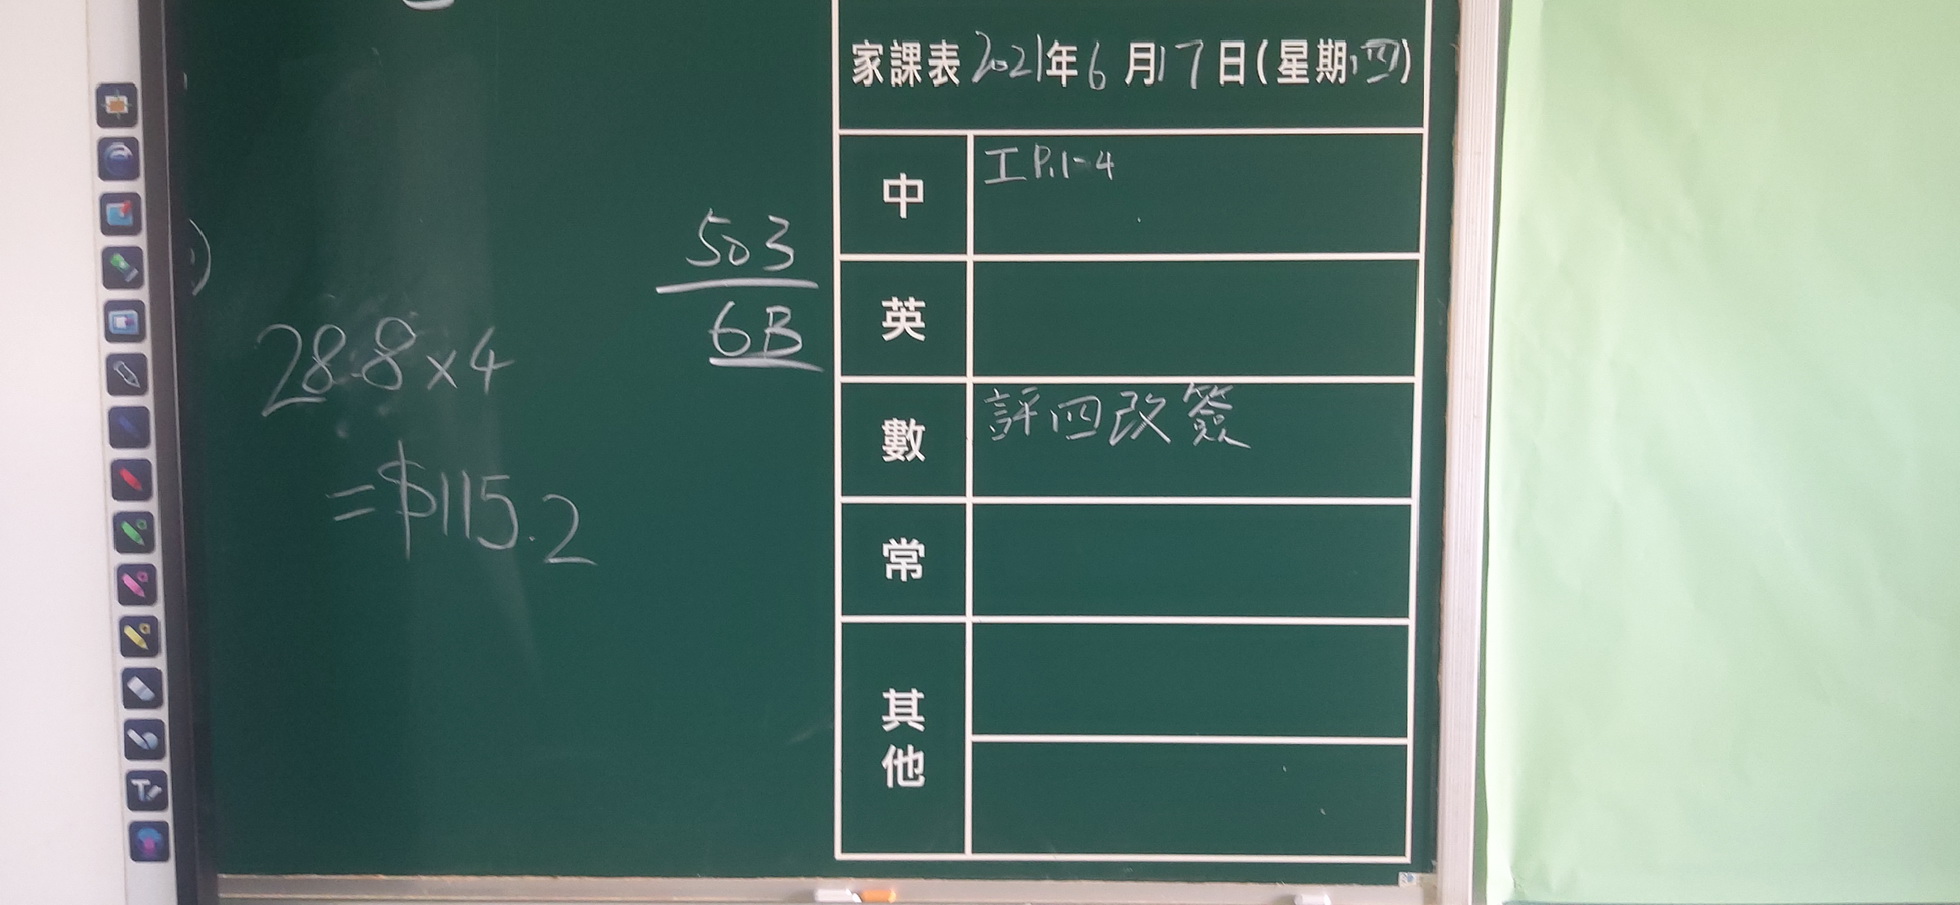 28.8×4
=$115.2
503
6B
家課表2021年6月17日(星期四)
中
工P.1-4
英
數
評四改簽
常
其他
T